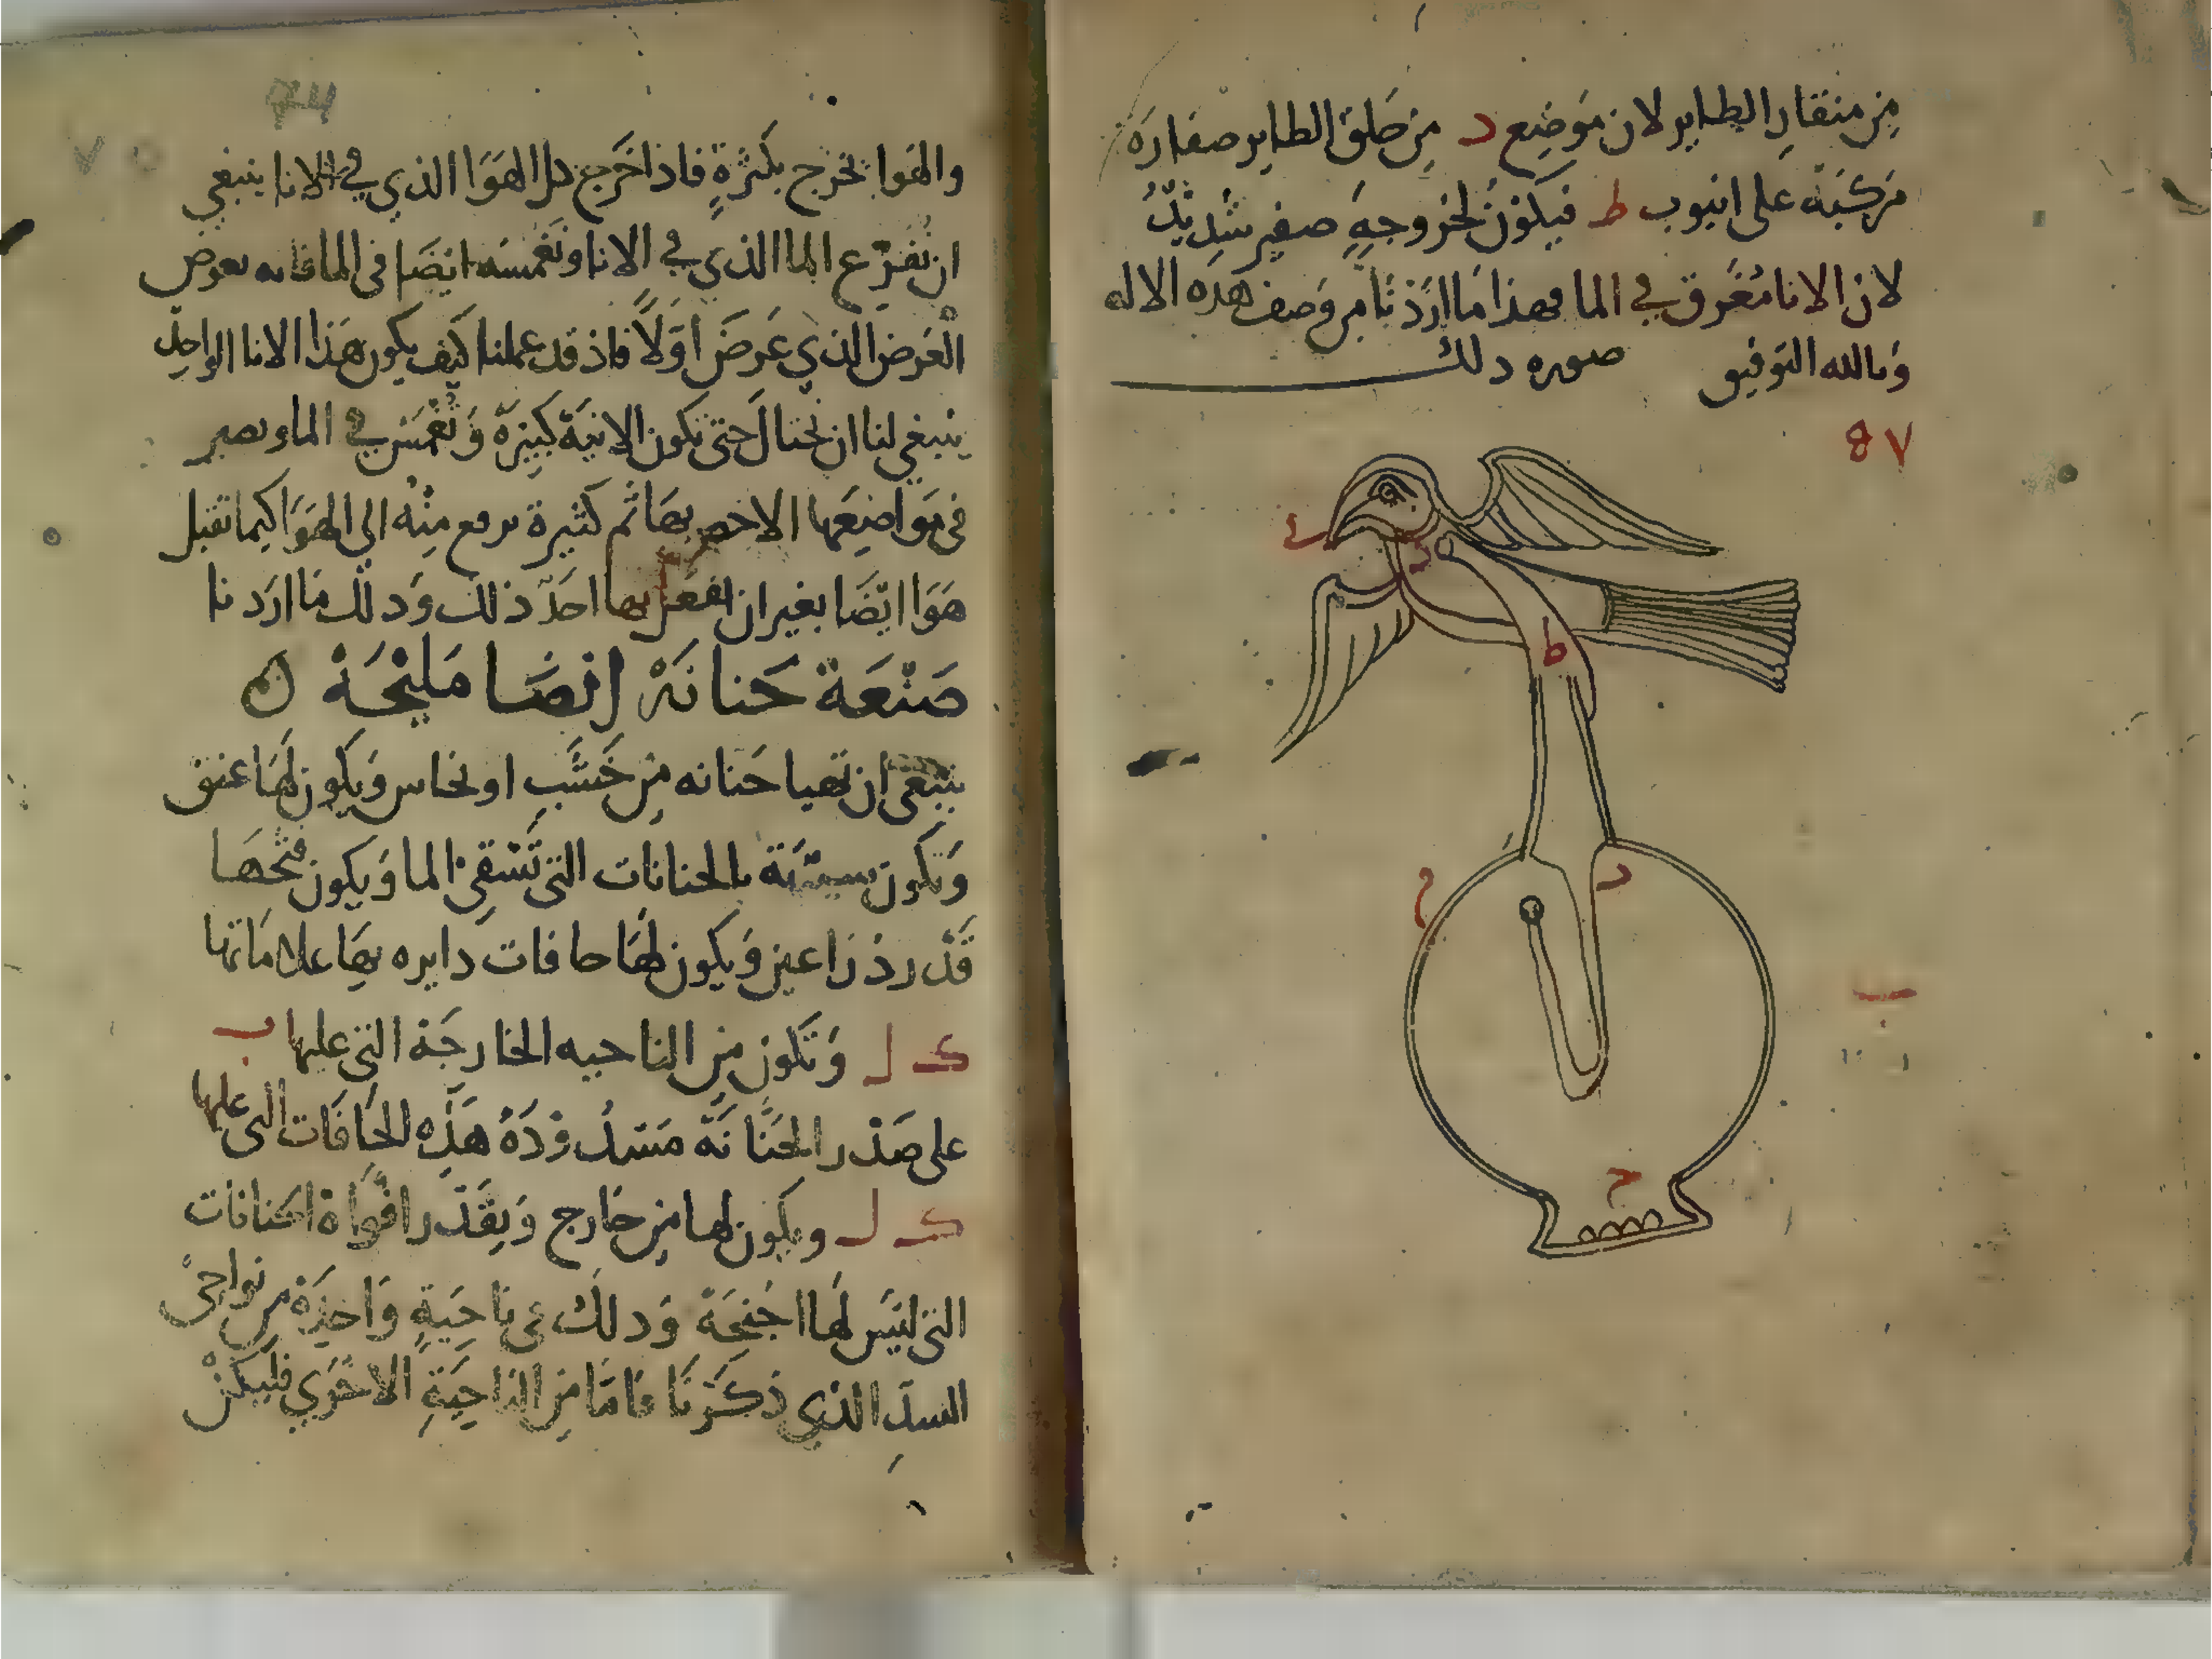 من منقار الطاير لان موضع د من حلق الطاير صفاره
مركبة على انبوب ط فيكون لخروجه صفير شديد
لان الانا مغرق في الما فهذا ما اردنا من وصف هذه الاله
وبالله التوفيق صوره دلك
٨٧
ط
د
ح
ب
ح
74
والهوا يخرج بكثرة فاذا خرج كل الهوا الذي في الانا ينبغي
ان نفرغ الما الذي في الانا ونغمسه ايضا فى الما فانه يعرض
العرض الذي عرض اولا فاذ قد علمنا كيف يكون هذا الانا الواحد
ينبغي لنا ان نحتال حتى تكون الانية كبيرة وتغمس في الما وتصير
فى مواضعها ثم كثيرة يرفع منه الى الهوا كيما تقبل
هوا ايضا بغير ان يفعل بها احد ذلك ودلك ما اردنا
صنعة حنانة ايضا مليحة
ينبغى ان تهيا حنانه من خشب او نحاس ويكون لها عنق
وتكون بالحنانات التى تسقي الما ويكون فتحها
قدر ذراعين ويكون لها حافات دايره بها علاماتها
كـ ل وتكون من الناحيه الخارجة التى عليها ب
على صدر الحنانة مسدودة هذه الحافات التى عليها
كـ ل ويكون لها من خارج ويقدر افواة الحنانات
التى ليس لها اجنحة ودلك فى ناحية واحدة من نواحى
السد الذي ذكرنا فاما من الناحية الاخرى فليكن